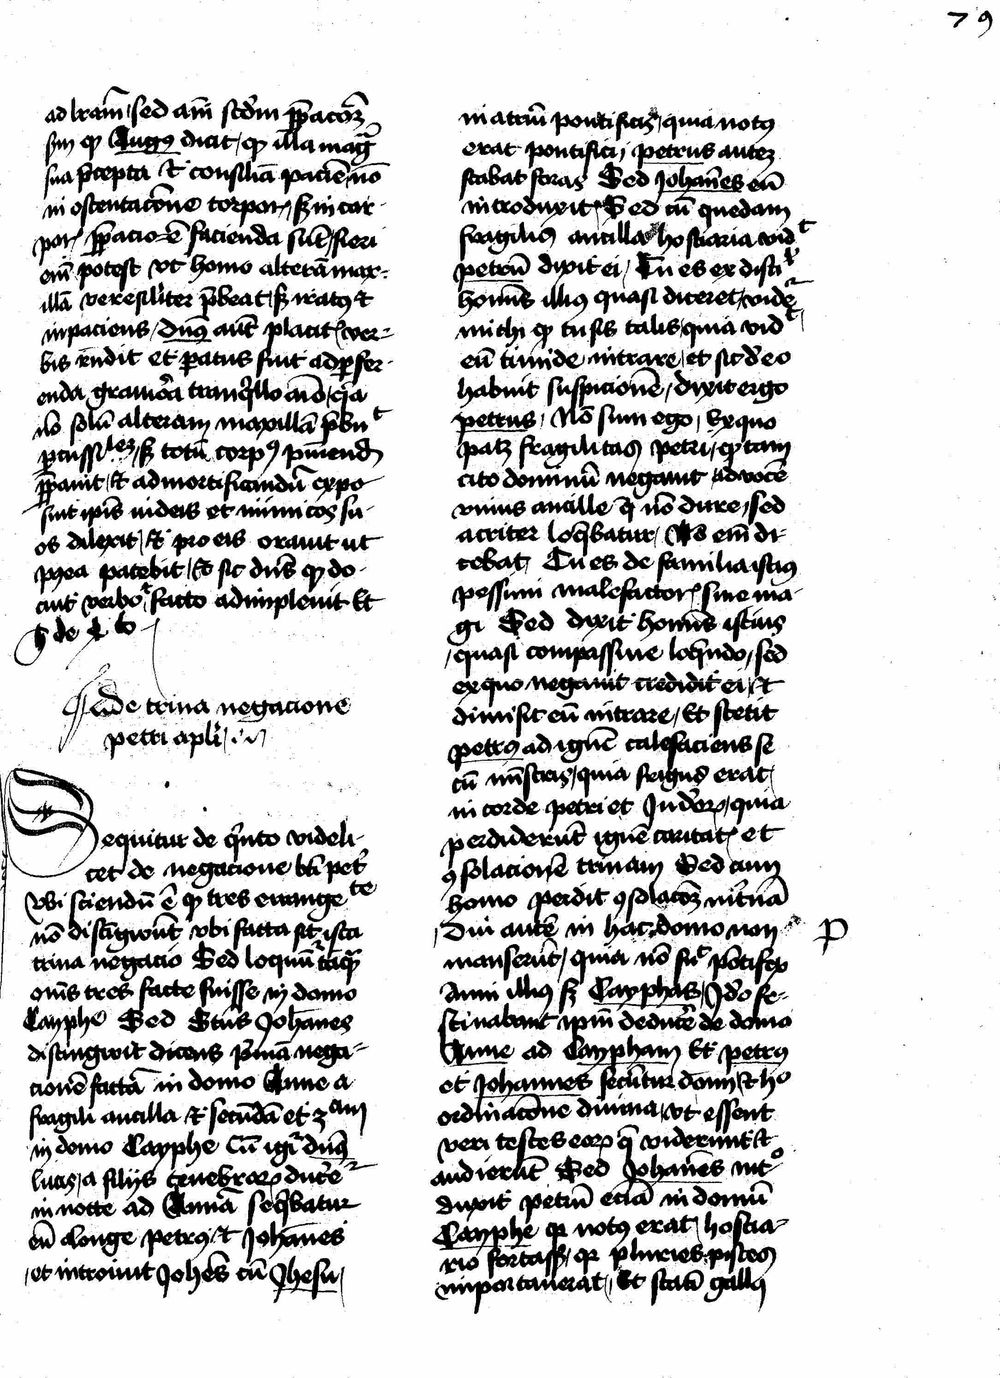 79
ad lr̄am sed am̄ scd̓m p̄pacōꝫ
sua p̄cepta et consilia pacien̄ nō
in ostentacōne corpor sꝫ in cor-
por p̄pacio ē facienda sūt fieri
em̄ potest vt homo alterā max-
illā veresilr̄ter p̄beat sꝫ iratus et
inpaciens dn̄s aut̄ placit ver-
bis rn̄dit et paratus fuit ad p̄fer-
enda graviora tranq̓llo aīo q̓a
nō solū alteram maxillā p̄buit
p̄cussi sꝫ totū corpꝰ p̄imend
p̄pauit et ad mortificandū expo
suit ipīs iudeis et inimicos su-
os dilexit et pro eis orauit ut
p̄ea patebit et sic dn̄s qͥ do-
cuit verbo facto adimpleuit Et
de trina negacione
petri apl̄i
Sequitur de q̓nto videli-
cet de negacione bt̄i pet
vbi sciendū ē qͥ tres ewangete
nō distīgwūt vbi facta sit ista
trina negacio Sed loqūtr̄ tāq̄
om̄s tres facte fuisse in domo
Cayphe Sed Bt̄us Johānes
distingwit dicens p̓mā nega-
cionē factā in domo Anne a
fragili ancilla et secundā et 3am
in domo Cayphe Cū igr̄ dn̄s
lucis a filijs tenebrarꝫ ducēr
in nocte ad Annā seq̄batur
eū a longe petrꝰ et Johānes
et introiuit Joh̄es cū Jhesu
in atriū pontificis quia notꝰ
erat pontifici petrus autez
stabat foras Sed Johānes eū
introduxit Sed cū quedam
fragilis ancilla hostiaria vidt
petrū dixit ei Tu es ex disci
hoīnis illiꝰ quasi diceret vider
michi qͥ tu sis talis quia vidt
eū timide intrare et sic de eo
habuit suspicionē dixit ergo
petrus Nō sum ego Ex quo
patꝫ fragilitas petri qͥ tam
cito dominū negauit ad vocē
vnius ancille q̄ nō dure sed
acriter loq̄batur Nō em̄ di-
cebat Tu es de familia istiꝰ
pessimi malefactor siue ma-
gi Sed dixit hoīnis istius
quasi compassiue loq̄ndo sed
ex quo negauit credidit ei et
dimisit eū intrare Et stetit
petrꝰ ad ignē calefaciens se
cū mīstris quia frigus erat
in corde petri et Judeorꝫ quia
perdiderūt ignē caritat et
ꝯsolacionē trinam Sed cum
homo perdit ꝯsolacōꝫ int̄nā
Diu autē in hac domo non
manserūt quia nō fuit pōtifex
Anni illiꝰ sꝫ Cayphas Jdo fe-
stinabant ipm̄ deducē de domo
Anne ad Caypham Et petrꝰ
et Johannes secūtur dom̄ et ho
ordinacōne diuina vt essent
veri testes eorꝫ q̄ viderunt et
audierūt Sed Johānes int°
duxit petrū eciā in domū
Cayphe qr notꝰ erat hostia-
rio fortassꝫ qr pluries pisces
importauerat Et statī gallꝰ